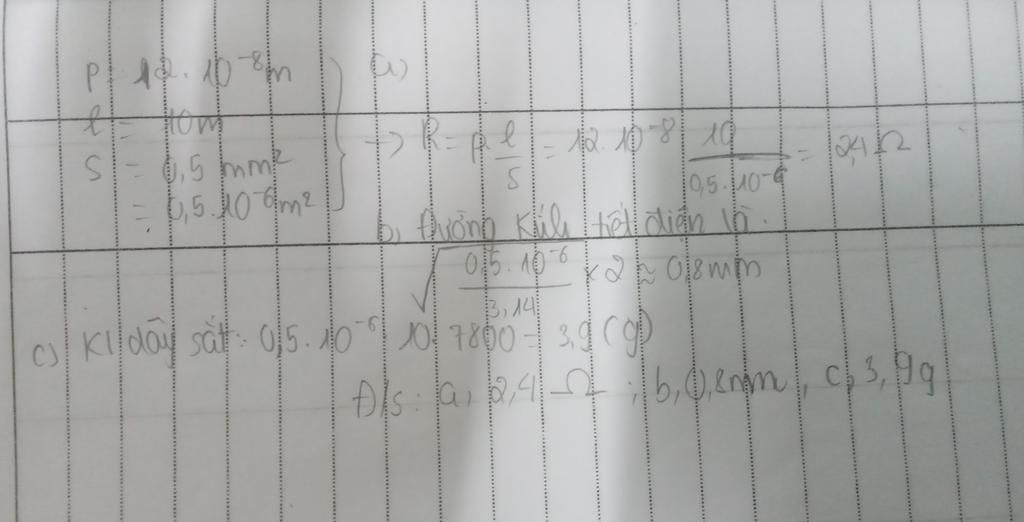 ρ = 12.10⁻⁸ m
l = 10m
S = 0,5 mm²
= 0,5.10⁻⁶ m²
a)
→ R = ρ l/S = 12.10⁻⁸ 10/0,5.10⁻⁶ = 2,4 Ω
b, Đường kính tiết diện là:
√(0,5.10⁻⁶/3,14) × 2 ≈ 0,8mm
c) Kl dây sắt: 0,5.10⁻⁶ 10. 7800 = 3,9 (g)
Đ/s: a, 2,4 Ω ; b, 0,8mm, c, 3,9g